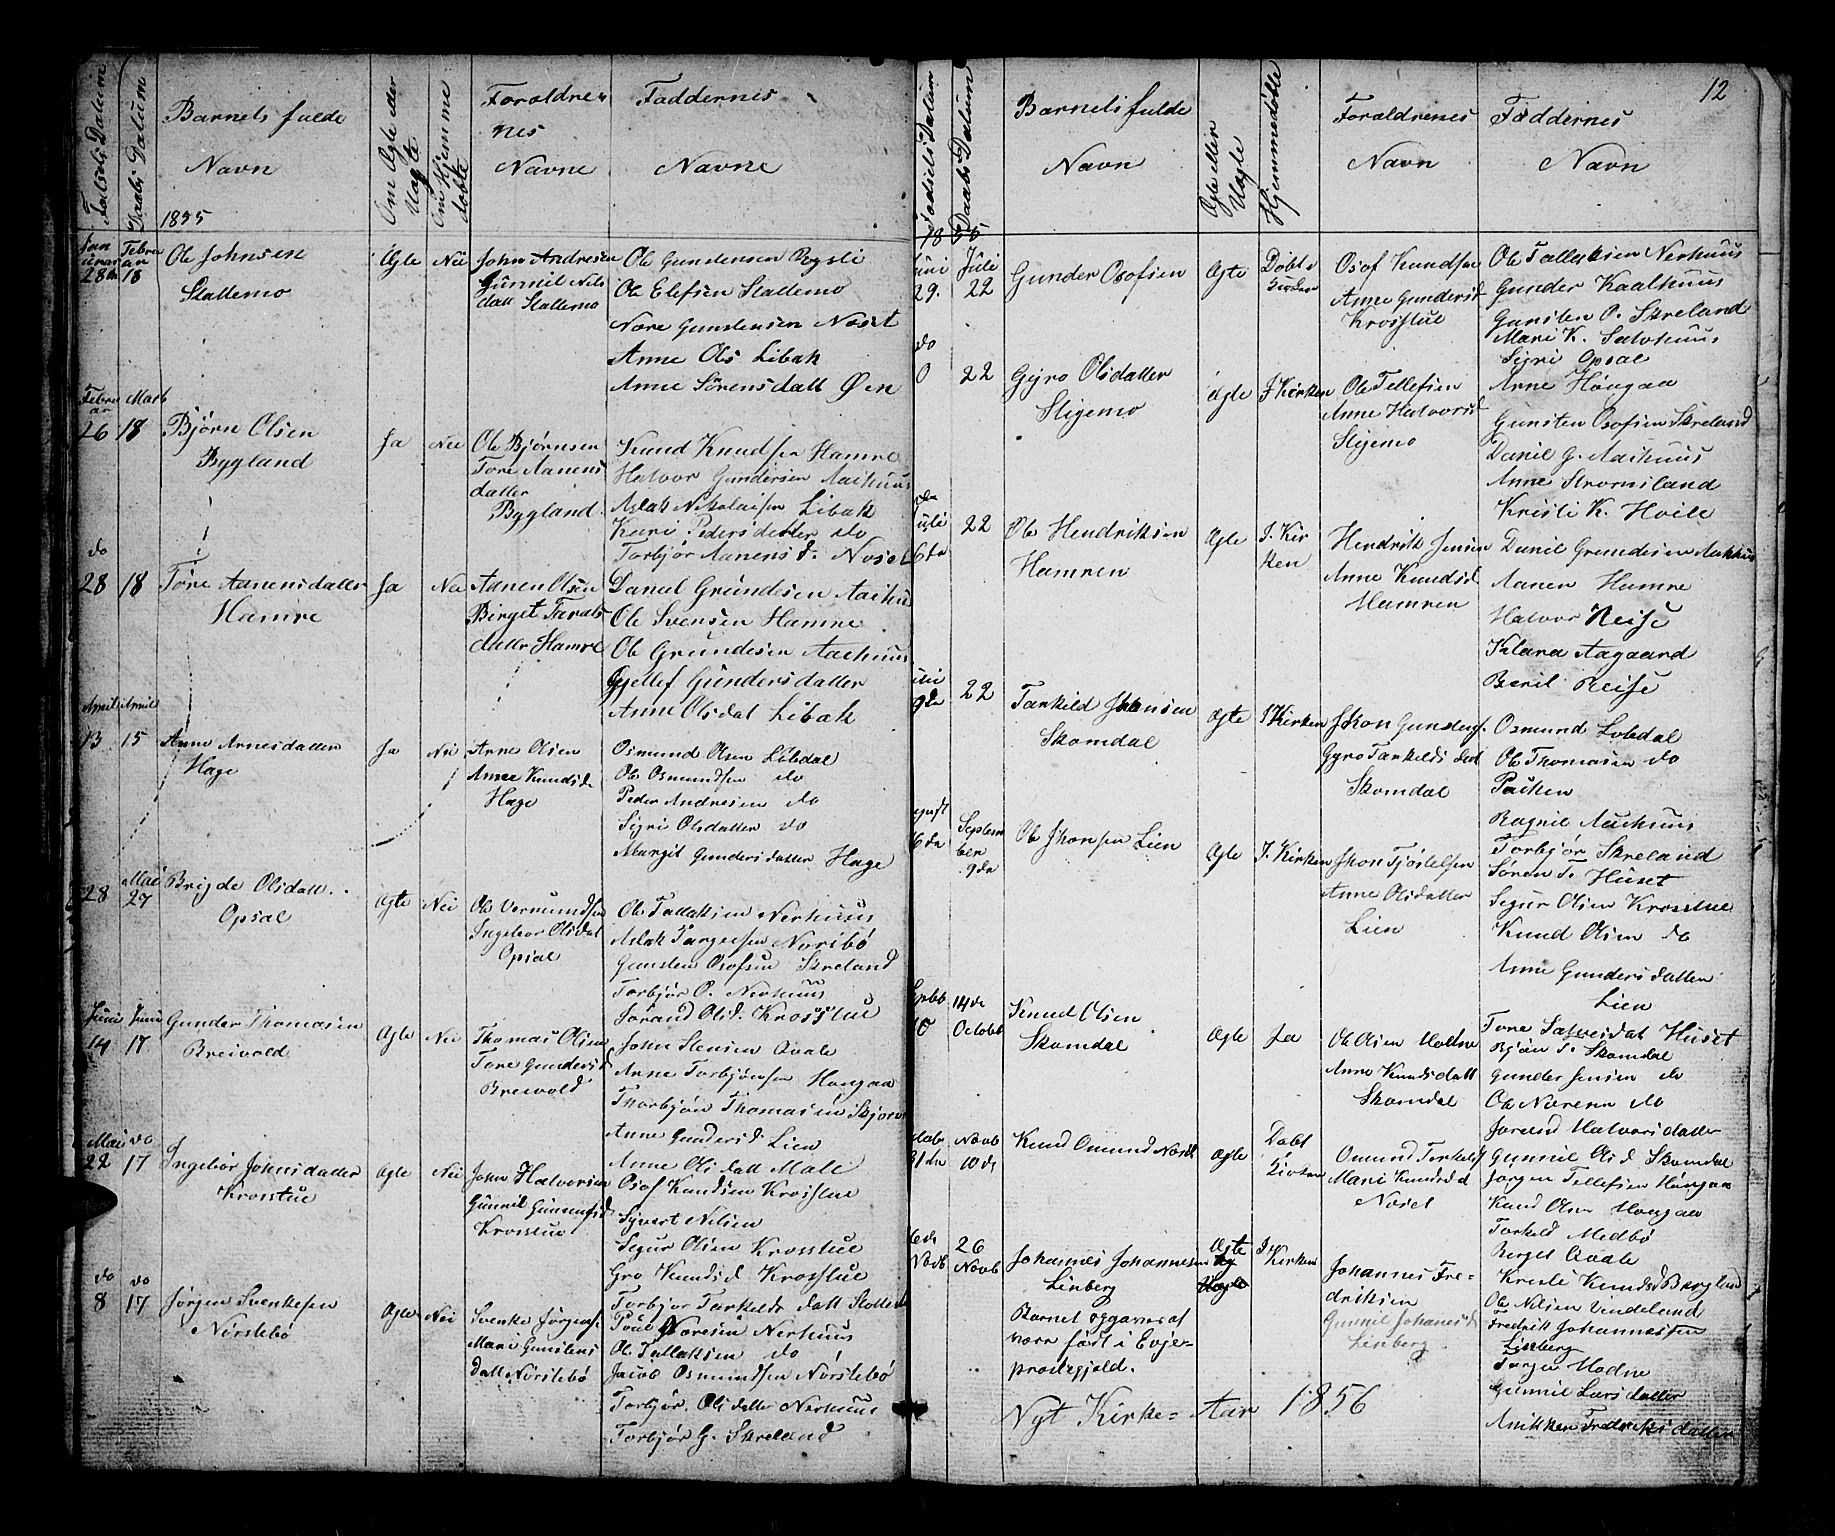 Fødsels Datum
Daabs Datum
Barnets fulde
Navn
1855
Om Ægte eder
Uægte
Om Hjemme
døbte
Foraldre=
nes
Navne
Faddernes
Navne
Januar
28de
Februar
18
Ole Johnsen
Stallemo
Ægte
Nei
John Andresen
Gunnil Nils
datt Stallemo
Ole Gundensen Bygsli
Ole Elefsen Stallemo
Nære Gunstensen Næset
Anne Ols Libak
Anne Sörensdatt Øen
Februar
26
Marts
18
Bjørn Olsen
Bygland
Ja
Nei
Ole Bjørnsen
Tore Aanens
datter
Bygland
Knud Knudsen Hamre
Halvor Gundersen Aaihuus
Aslak Nikolaisen Libak
Kari Pedersdatter do
Torbjør Aanens d. Noset
do
28
18
Tøre Aanensdatter
Hamre
Ja
Nei
Aanen Olsen
Birget Tarals
datter Hamre
Daniel Grundesen Aaihuus
Ole Svensen Hamre
Ole Grundesen Aaihuus
Gjellef Gundersdatter
Anne Olsdat Libak
April
13
April
15
Anne Arnesdatter
Hage
Ja
Nei
Arne Olsen
Anne Knudsd
Hage
Osmund Olsen Løbdal
Ole Osmundsen do
Peder Andresen do
Sigri Olsdatter do
Margit Gundersdatter Hage
28
Mai
27
Brigde Olsdatt
Opsal
Ægte
Nei
Ole Vermundsen
Ingebor Olsdat
Opsal
Ole Tallaksen Nerhuus
Aslak Targeesen Noribø
Gunsten Osofsen Skreland
Torbjør O. Nerhuus
Jorand Olsd. Krosstue
Juni
14
Juni
17
Gunder Thomasen
Breivold
Ægte
Nei
Thomas Olsen
Tore Gundersd
Breivold
John Stensen Qvale
Anne Torbjörnsen Hougaa
Thorbjön Thomasen Skjorv
Anne Gundersd Lien
Anne Olsdatt Mole
Mai
22
do
17
Ingebör Johnsdatter
Krosstue
Ægte
Nei
John Halvorsen
Gunnil Gunnufsd
Krosstue
Osof Knudsen Krosstue
Syvert Nilsen
Segur Olsen Krosstue
Gro Knudsd Krosstue
Torbjor Tarkelds datt Slottene
do
8
do
17
Jørgen Svenkesen
Nörstebö
Ægte
Nei
Svenke Jørgens.
Mari Gunstens
datt Nörstebö
Tore Næresen Nerhuus
Ole Tallaksen do
Jacob Osmundsen Nörstebö
Torbjør Olsdatter Nerhuus
Torbjør G. Skreland
12
Fødsels Datum
Daabs Datum
1855
Barnets fulde
Navn
Ægte eller
Uægte
Hjemmedøbte
Foraldrenes
Navn
Faddernes
Navn
Juni
29.
Juli
22
Gunder Osofsen
Ægte
Døbt i
Kirken
Osof Knudsen
Anne Gundersd
Krosstue
Ole Tallaksen Nerhuus
Gunder Kaalhuus
Gunsten O. Skreland
Mari K. Salvhuus
Sigri Opsal
do
22
Gyro Olsdatter
Sligemo
Ægte
I Kirken
Ole Tellefsen
Anne Halvorsd
Sligemo
Arne Hougaa
Gunsten Osofsen Skreland
Daniel G. Aaihuus
Anne Stromsland
Kristi K. Hoile
Juli
6te
22
Ole Hendriksen
Hamren
Ægte
I. Kir
ken
Hendrik Jensen
Anne Knudsd
Hamren
Danil Grundesen Aaihuus
Aanen Hamre
Halvor Reise
Klara Aagaard
Beril Reise
9de
22
Tarkild Jhonsen
Skomdal
Ægte
I Kirken
Jhon Gunders.
Gyro Tarkelds dat
Skomdal
Osmund Lobdal
Ole Thomasen do
Paiken
Ragnil Aaihuus
Torbjør Skreland
6te
September
9de
Ole Jhonsen Lien
Ægte
I. Kirken
Jhon Tjöstelsen
Anne Olsdatter
Lien
Søren T. Huset
Segur Olsen Krosstue
Knud Olsen do
Anne Gundersdatter
Lien
10
14de
Octobr
Knud Olsen
Skomdal
Ægte
Ja
Ole Olsen
Anne Knudsdatt
Skomdal
Tore Salvesdat Huset
Bjön T. Skomdal
Gunder Jensen do
Ole Nærenn do
Jorend Halvorsdatter
31te
Novb
10de
Knud Omund Næset
Ægte
Døbt
Kirken
Omund Terkelsf
Mari Knudsd
Næset
Gunnil Olsd Skomdal
Jørgen Tellefsen Hougaa
Knud Olsen Hougaa
Torkeld Medbö
Berget Qvale
6de
Novb
26
Novb
Johannes Johannesen
Linberg
Barnet opgaves at
være født i Evje=
prestegjæld.
Ægte
I
Kirken
Johannes Fre=
driksen
Gunnil Johanesd
Linberg
Kristi Knudsd Bergland
Ole Nilsen Vindeland
Fredrik Johannessen
Linberg
Jørgen Hodne
Gunnil Larsdatter
Anikken Fredriksdatter
Nyt Kirke= Aar 1856